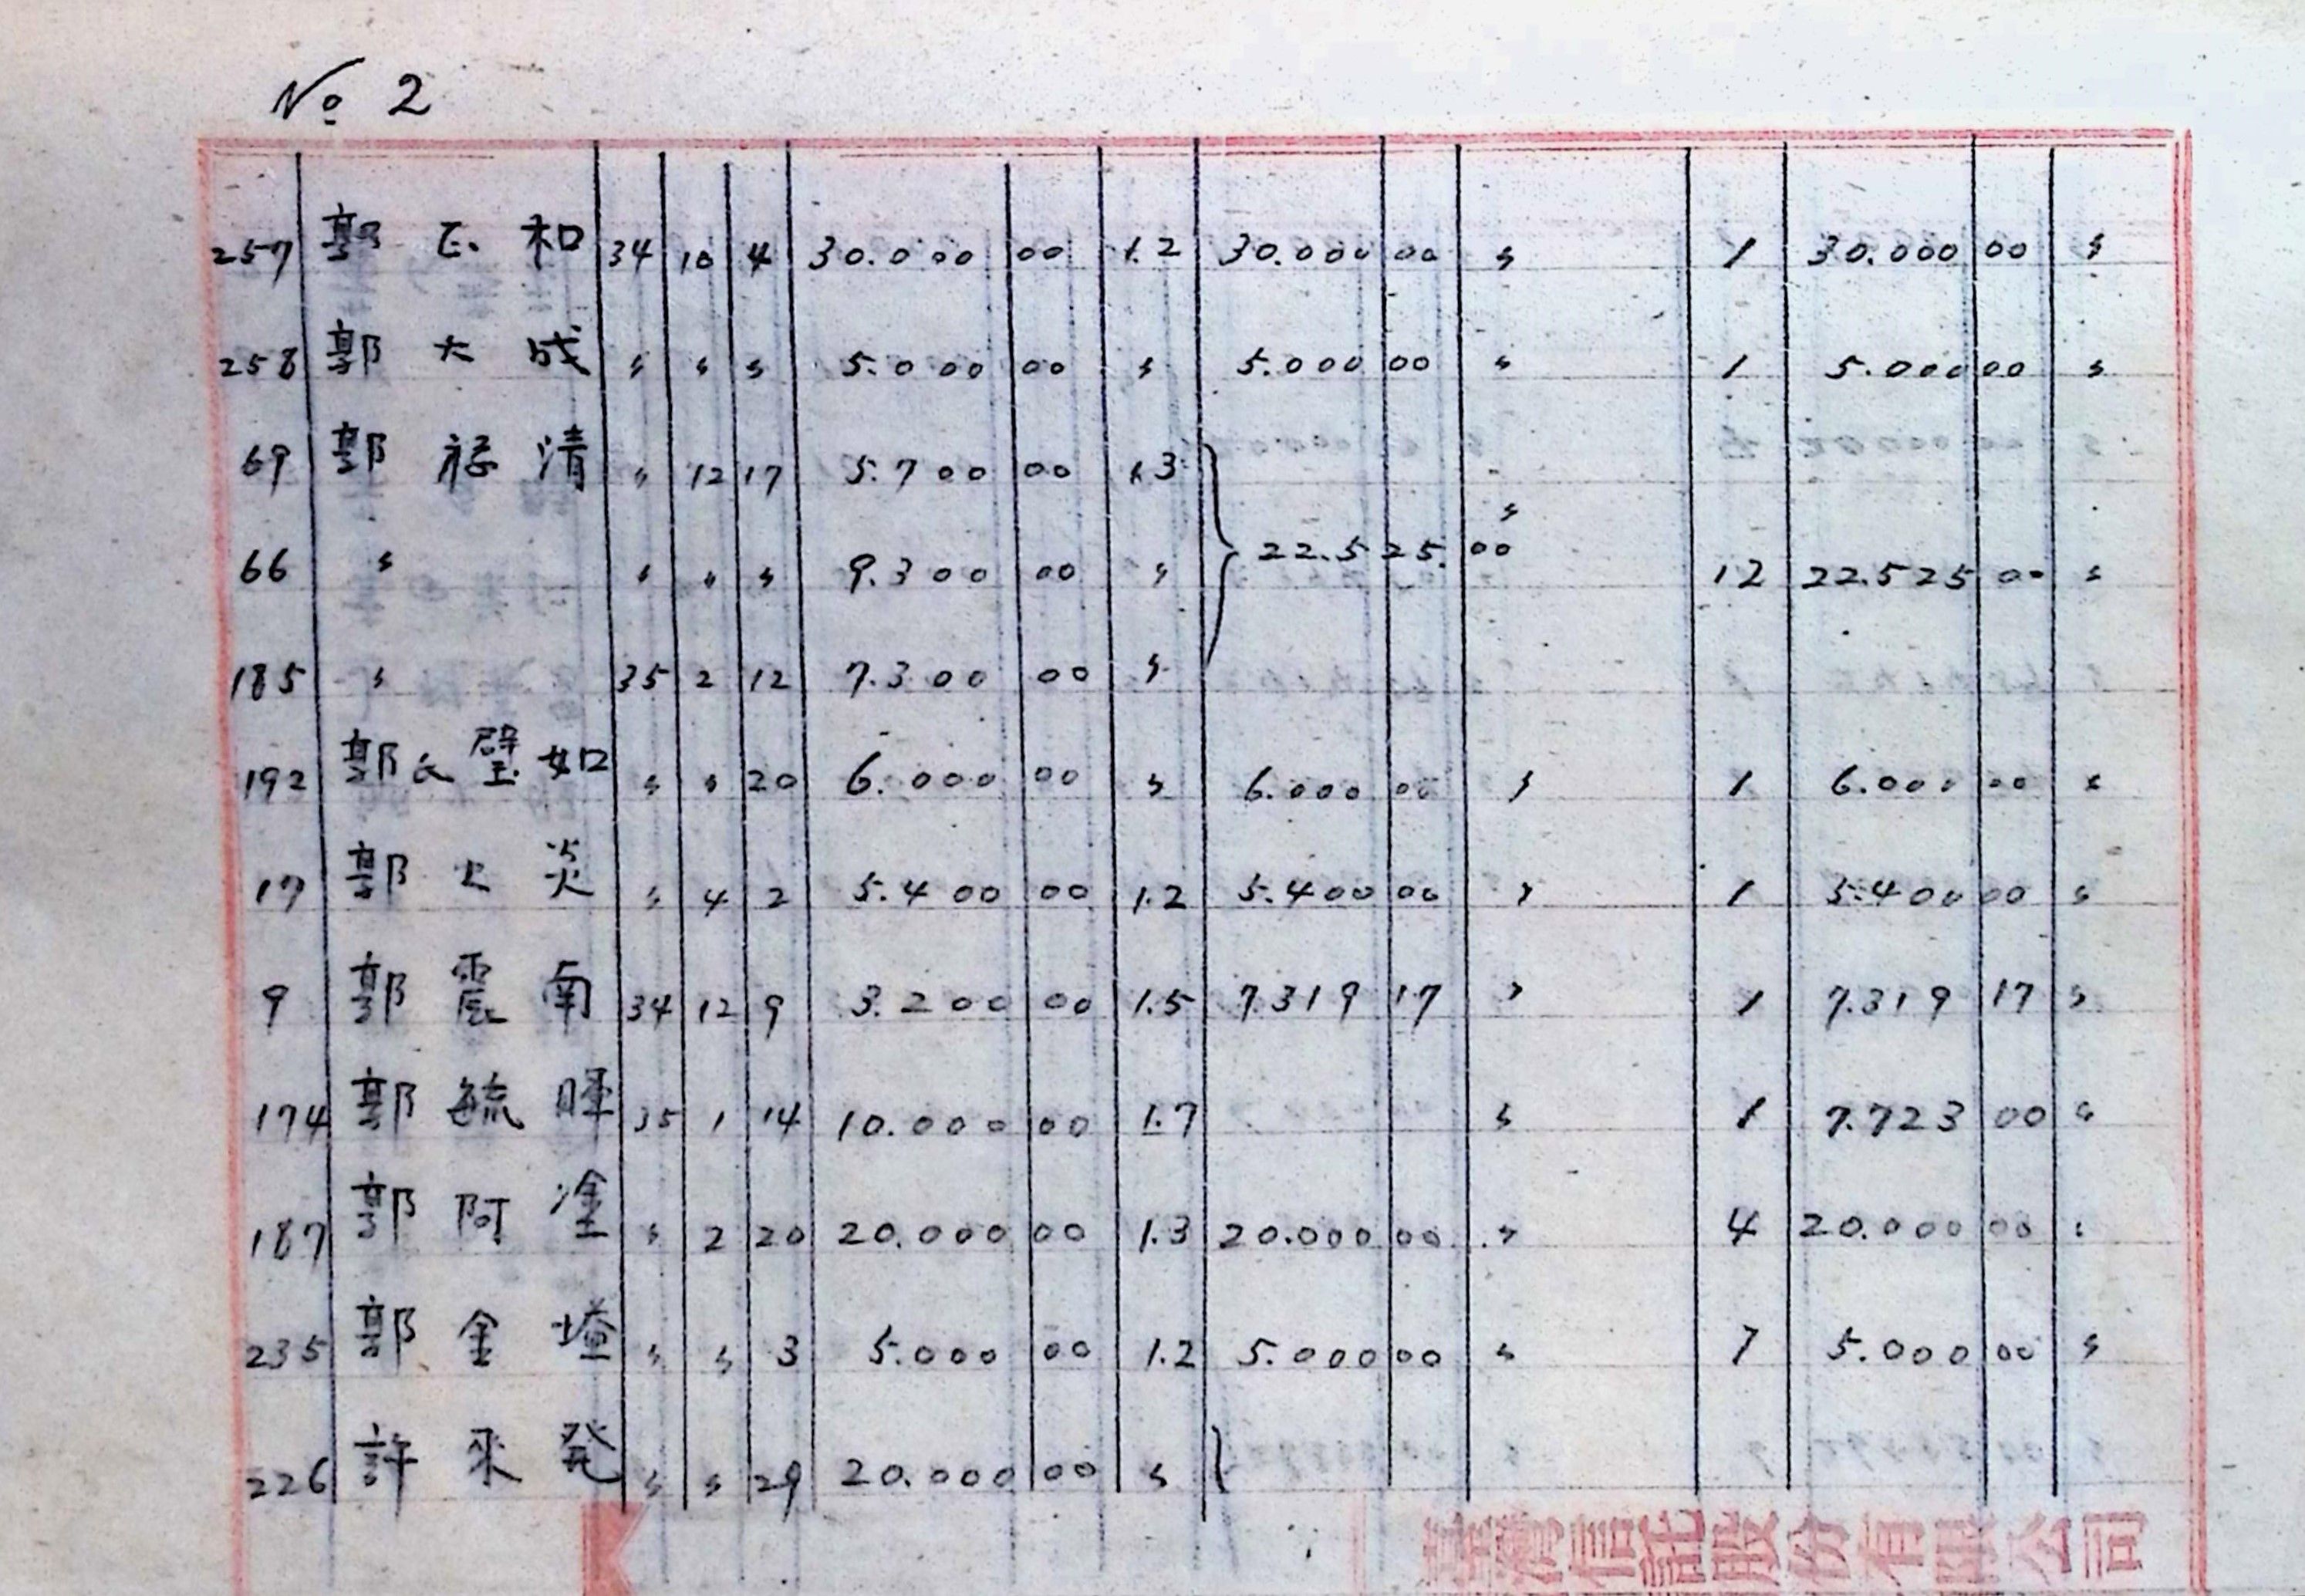 No 2
257 郭正和 34 10 4 30.000 00 1.2 30.000 00 〃 1 30.000 00 〃
258 郭大成 〃 〃 〃 5.000 00 〃 5.000 00 〃 1 5.000 00 〃
69 郭福清 〃 12 17 5.700 00 1.3 〃
66 〃 〃 〃 〃 9.300 00 〃 22.525.00 12 22.525 00 〃
185 〃 35 2 12 7.300 00 〃
192 郭氏璧如 〃 〃 20 6.000 00 〃 6.000 00 〃 1 6.000 00 〃
17 郭火炎 〃 4 2 5.400 00 1.2 5.400 00 〃 1 5.400 00 〃
9 郭震南 34 12 9 3.200 00 1.5 7.319 17 〃 1 7.319 17 〃
174 郭毓暉 35 1 14 10.000 00 1.7 〃 1 7.723 00 〃
187 郭阿塗 〃 2 20 20.000 00 1.3 20.000 00 〃 4 20.000 00 〃
235 郭金 〃 〃 3 5.000 00 1.2 5.000 00 〃 1 5.000 00 〃
226 許來発 〃 〃 29 20.000 00 〃
臺灣信託股份有限公司